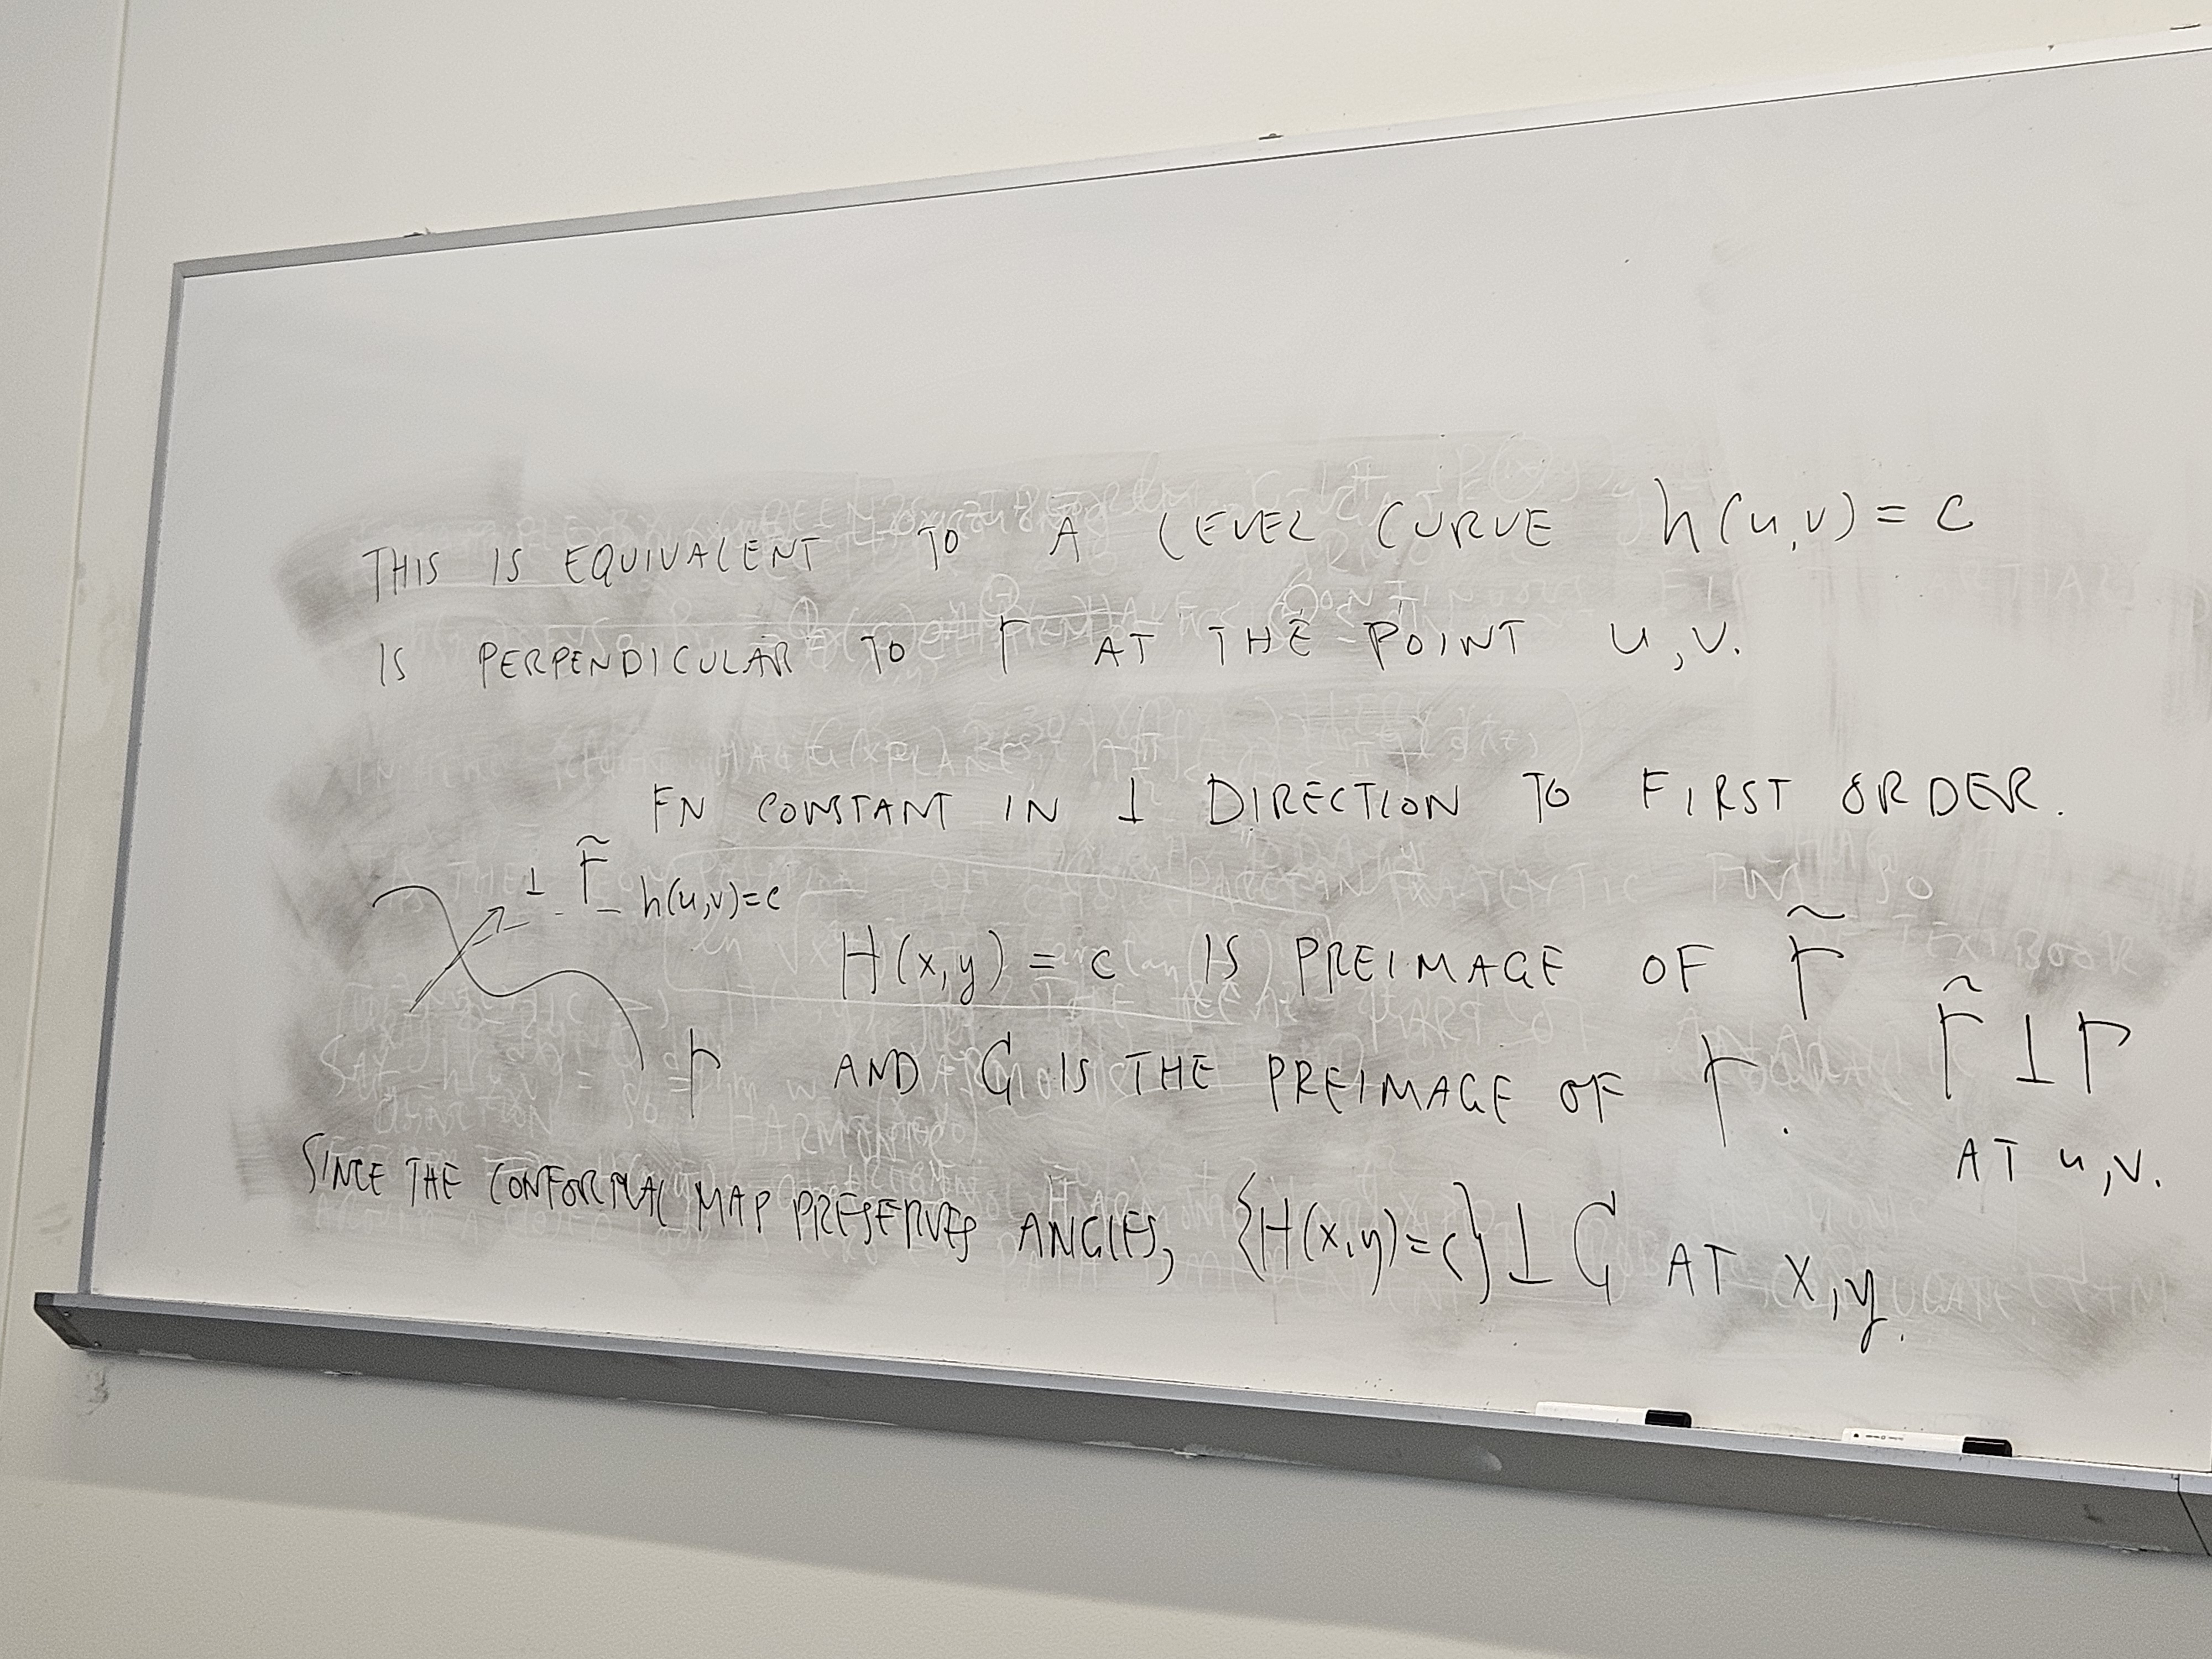 THIS IS EQUIVALENT TO A LEVEL CURVE h(u,v) = c
IS PERPENDICULAR TO Γ AT THE POINT u,v.
FN CONSTANT IN ⊥ DIRECTION TO FIRST ORDER.
⊥ Γ̃ h(u,v)=c
H(x,y) = c IS PREIMAGE OF Γ̃
Γ AND C IS THE PREIMAGE OF Γ. Γ̃ ⊥ Γ
AT u,v.
SINCE THE CONFORMAL MAP PRESERVES ANGLES, {H(x,y)=c} ⊥ C AT x,y.